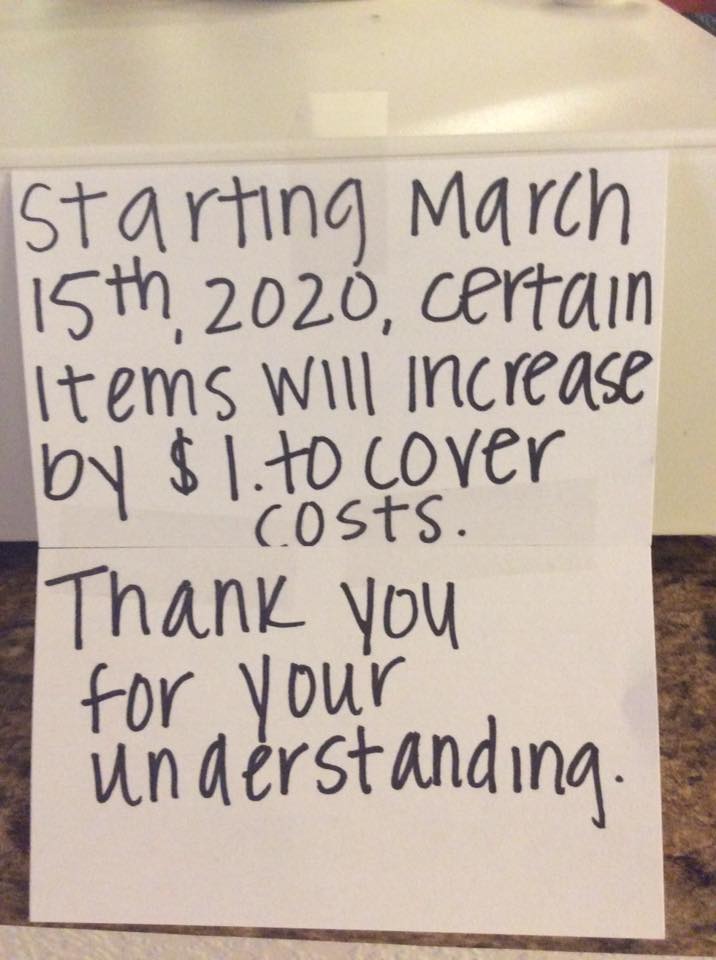 Starting March
15th, 2020, certain
items will increase
by $1. to cover
costs.
Thank you
for your
understanding.